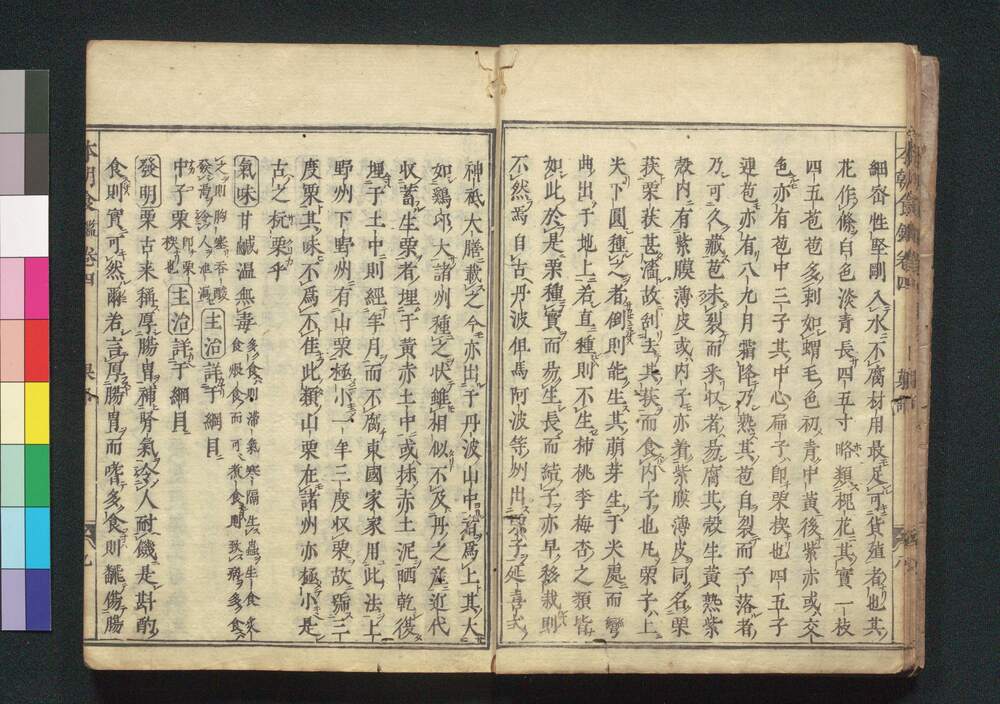 細密性堅剛入水不腐材用最足可貨殖者也其
花作條白色淡青長四五寸略類梔花其實一枝
四五苞苞多刺如蝟毛色初青中黃後紫赤或交
色亦有苞中三子其中心扁子即栗楔也四五子
連苞亦有八九月霜降乃熟其苞自裂而子落者
乃可久藏苞未裂而采收者易腐其殼生黃熟紫
殼內有紫膜薄皮或內子亦着紫膜薄皮同名栗
荴栗荴甚濇故刮去其荴而食內子也凡栗子上
尖下圓種之者倒則能生其萌芽生于尖處而彎
曲出于地上若直種則不生柿桃李梅杏之類皆
如此於是栗種實而易生長而結子亦早移栽則
不然焉自古丹波但馬阿波等州出栗子延喜式
神祇大膳載之今亦出于丹波山中者爲上其大
如鷄卵大諸州種之狀雖相似不及丹之產近代
收蓄生栗者埋于黃赤土中或抹赤土泥晒乾復
埋于土中則經年月而不腐東國家家用此法上
野州下野州有山栗極小一年三度收栗故號三
度栗其味不爲不佳此類山栗在諸州亦極小是
古之杬栗乎
氣味甘鹹溫無毒多食則滯氣寒隔生蟲生食
食則實可然爾若言厚腸胃而嗜多食則能傷腸
中子栗即栗楔也主治詳于綱目
發明栗古來稱厚腸胃補腎氣令人耐饑是斟酌
本朝食鑑卷四